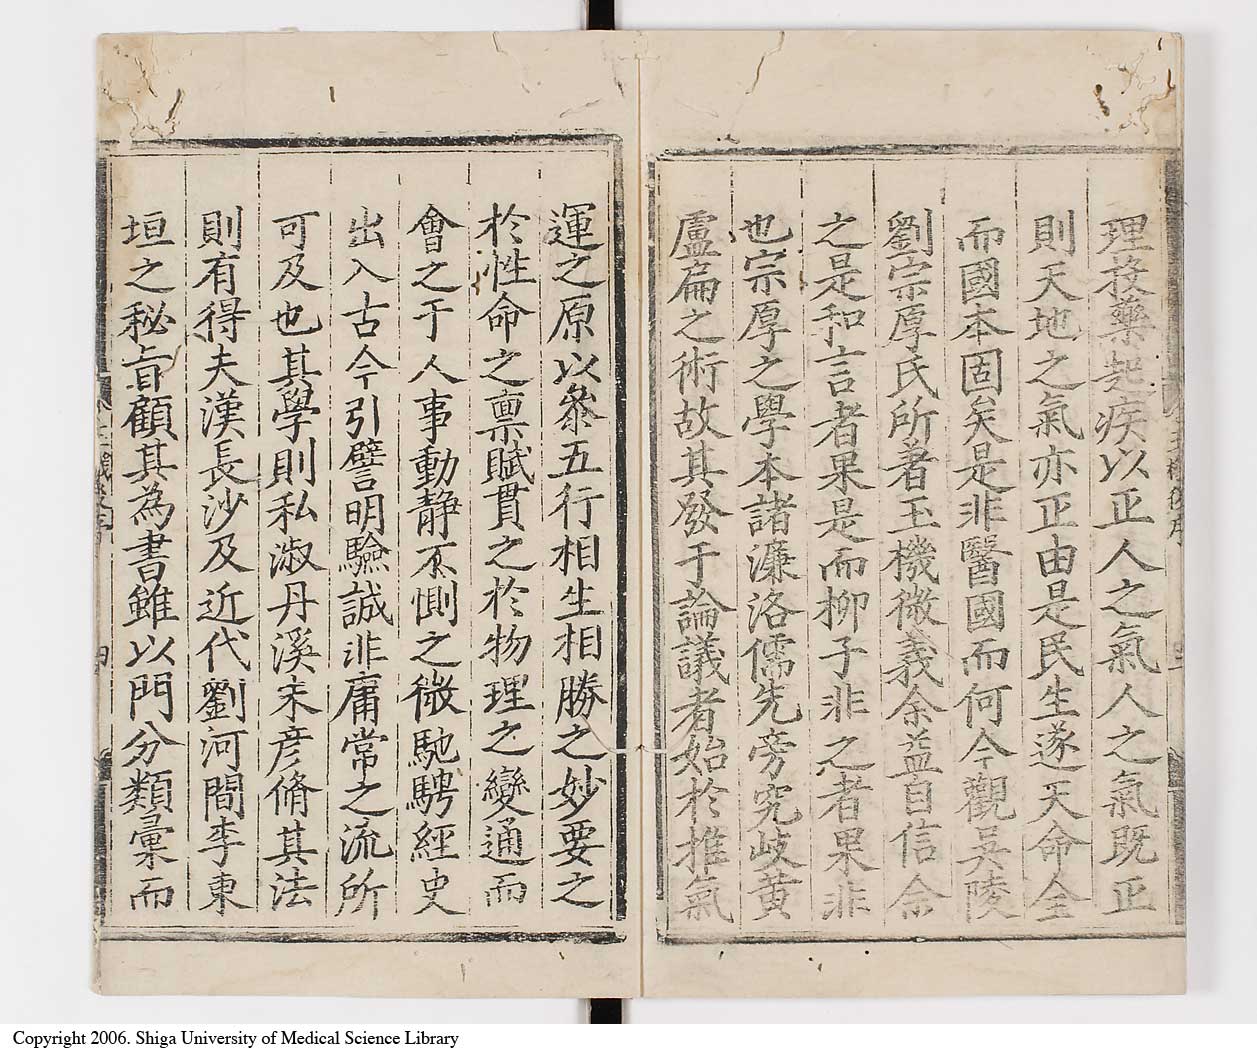 理投藥起疾以正人之氣人之氣既正
則天地之氣亦正由是民生遂天命全
而國本固矣是非醫國而何今觀吳陵
劉宗厚氏所著玉機微義余益自信余
之是和言者果是而柳子非之者果非
也宗厚之學本諸濂洛儒先旁究岐黄
盧扁之術故其發于論議者始於推氣
運之原以叅五行相生相勝之妙要之
於性命之禀賦貫之於物理之變通而
會之于人事動靜不惻之微馳騁經史
出入古今引譬明驗誠非庸常之流所
可及也其學則私淑丹溪宋彦脩其法
則有得夫漢長沙及近代劉河間李東
垣之秘旨顧其為書雖以門分類彙而
Copyright 2006. Shiga University of Medical Science Library